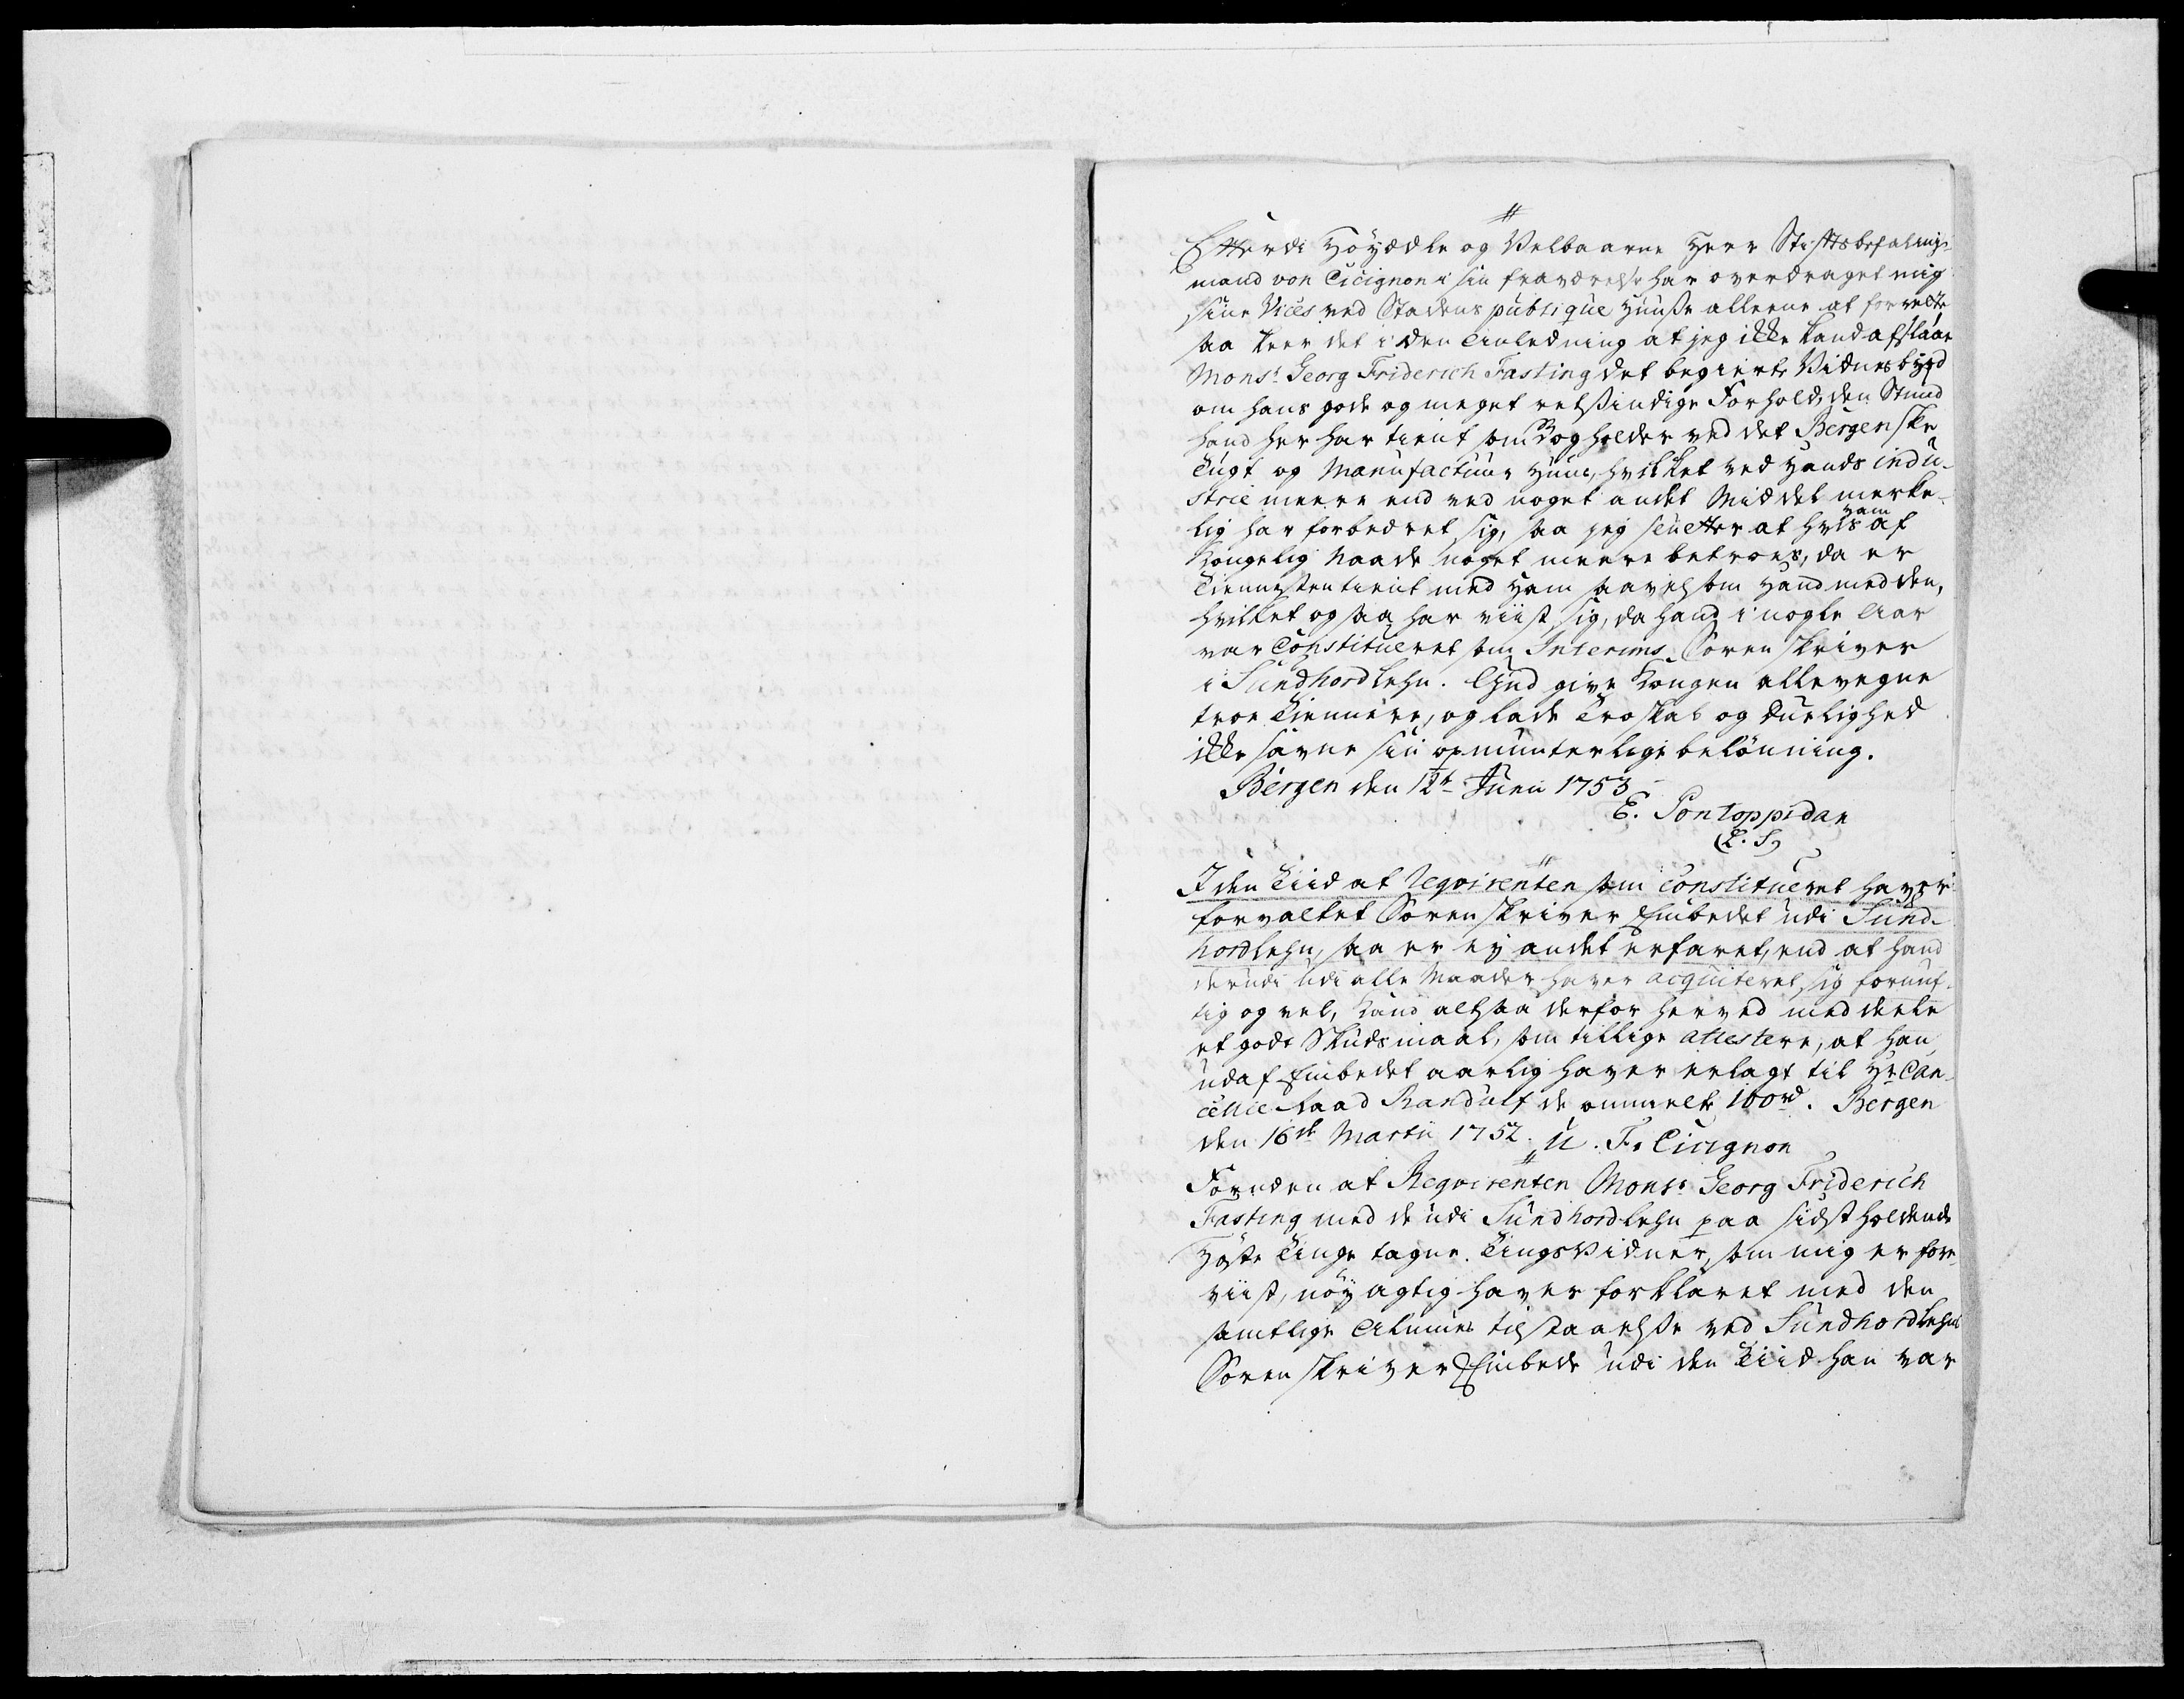 #
Efterdi Höyædle og Velbaarne Herr Stiftsbefalings-
mand von Cicignon i sin fraværelse har overdraget mig
sine Vices ved Stadens publique Huuse alleene at forrette
saa skeer det i den Anledning at jeg ikke kand afslaae
Monsr. Georg Friderich Fasting det begierte Vidnesbyrd
om hans gode og meget retsindige Forhold, den Stund
hand her har tient som Bogholder ved det Bergenske
Tugt og Manufactuur Huus, hvilket ved Hands indu-
strie meere end ved noget andet Middel merke-
lig har forbedret sig, saa jeg slutter at hvis ham af
Kongelig Naade noget meere betroes, da er
Tienesten tient med Ham saavelsom Hand med den,
hvilket ogsaa har viist sig, da hand i nogle Aar
var Constitueret som Interims Sorenskriver
i Sundhordlehn. Gud give Kongen allevegne
troe Tiennere, og lade Troskab og Duelighed
ikke savne sin opmunterlige belönning.
Bergen den 12te Junii 1753
E. Pontoppidan
(L. S)
#
I den Tiid at Reqvirenten som Constitueret haver
forvaltet Sorenskriver Embedet udi Sund-
hordlehn, saa er ey andet erfaret, end at hand
derudi udi alle Maader haver acquiteret sig fornuf-
tig og vel, kand altsaa derfor herved meddeele
et godt Skudsmaal, som tillige attestere, at han
udaf Embedet aarlig haver erlagt til Hr. Can-
cellie Raad Randulf de ommelte 100 rd. Bergen
den 16de Martii 1752. U. F. Cicignon
#
Foruden at Reqvirenten Monsr. Georg Friderich
Fasting med de udi Sundhordlehn paa sidstholdende
Höste Tinge tagne Tingsvidner, som mig er fore-
viist, nöyagtig haver forklaret med den
samtlige Almues tilstaaelse ved Sundhordlehns
Sorenskriver Embede udi den Tiid han var